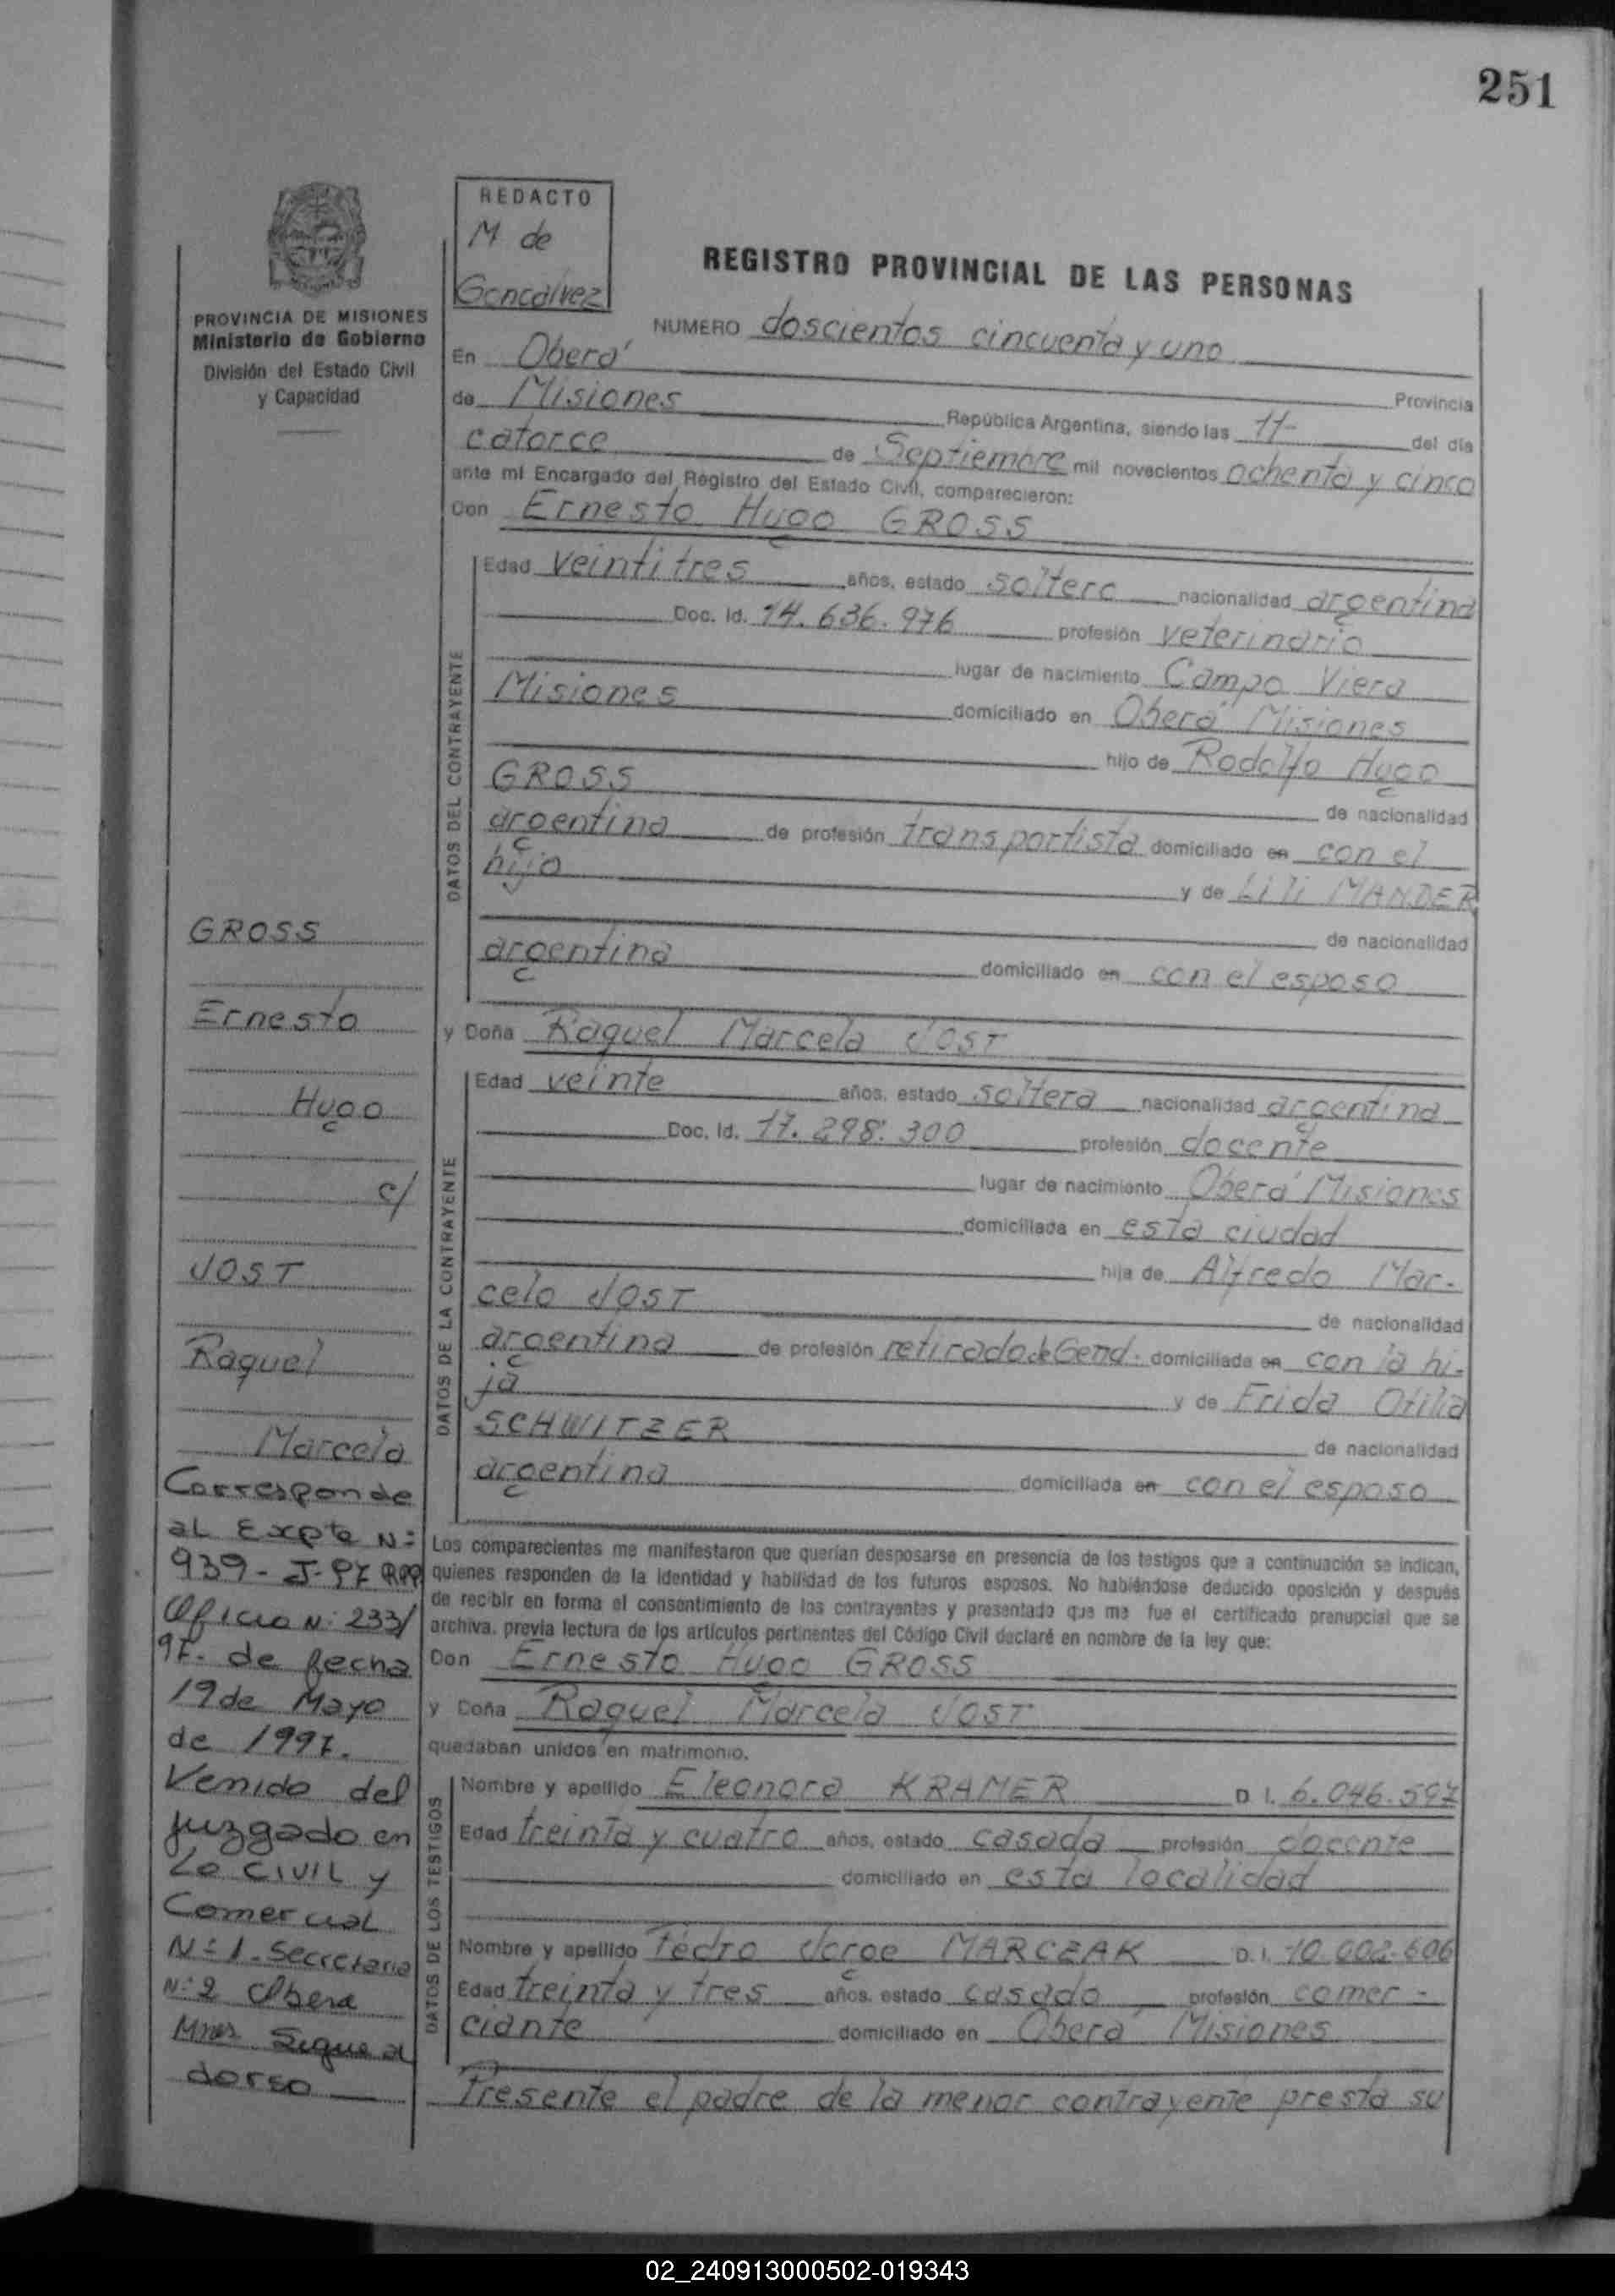 251
REDACTO
M de
Goncalvez
PROVINCIA DE MISIONES
Ministerio de Gobierno
División del Estado Civil
y Capacidad
REGISTRO PROVINCIAL DE LAS PERSONAS
NUMERO doscientos cincuenta y uno
En Oberá Provincia
de Misiones República Argentina, siendo las 11- del día
catorce de Septiembre mil novecientos ochenta y cinco
ante mí Encargado del Registro del Estado Civil, comparecieron:
Don Ernesto Hugo GROSS
DATOS DEL CONTRAYENTE
Edad veintitres años, estado soltero nacionalidad argentina
Doc. Id. 14.636.976 profesión veterinario
lugar de nacimiento Campo Viera
Misiones domiciliado en Oberá Misiones
hijo de Rodolfo Hugo
GROSS de nacionalidad
argentina de profesión transportista domiciliado en con el
hijo y de Lili MANDER
de nacionalidad
argentina domiciliado en con el esposo
y Doña Raquel Marcela JOST
DATOS DE LA CONTRAYENTE
Edad veinte años, estado soltera nacionalidad argentina
Doc. Id. 17.298.300 profesión docente
lugar de nacimiento Oberá Misiones
domiciliada en esta ciudad
hija de Alfredo Mar-
celo JOST de nacionalidad
argentina de profesión retirado de Gend. domiciliada en con la hi-
ja y de Frida Otilia
SCHWITZER de nacionalidad
argentina domiciliada en con el esposo
Los comparecientes me manifestaron que querían desposarse en presencia de los testigos que a continuación se indican,
quienes responden de la identidad y habilidad de los futuros esposos. No habiéndose deducido oposición y después
de recibir en forma el consentimiento de los contrayentes y presentado que me fue el certificado prenupcial que se
archiva, previa lectura de los artículos pertinentes del Código Civil declaré en nombre de la ley que:
Don Ernesto Hugo GROSS
y Doña Raquel Marcela JOST
quedaban unidos en matrimonio.
DATOS DE LOS TESTIGOS
Nombre y apellido Eleonora KRAMER D. I. 6.046.597
Edad treinta y cuatro años, estado casada profesión docente
domiciliado en esta localidad
Nombre y apellido Pedro Jorge MARCZAK D. I. 10.602.606
Edad treinta y tres años, estado casado profesión comer-
ciante domiciliado en Oberá Misiones
Presente el padre de la menor contrayente presta su
GROSS
Ernesto
Hugo
c/
JOST
Raquel
Marcela
Corresponde
al Expte N:
939-J-97 RPP
Oficio N: 233/
97. de fecha
19 de Mayo
de 1997.
Venido del
juzgado en
Lo CIVIL y
Comercial
N: 1. Secretaria
N: 2 Obera
Mnes. Sigue al
dorso
02_240913000502-019343